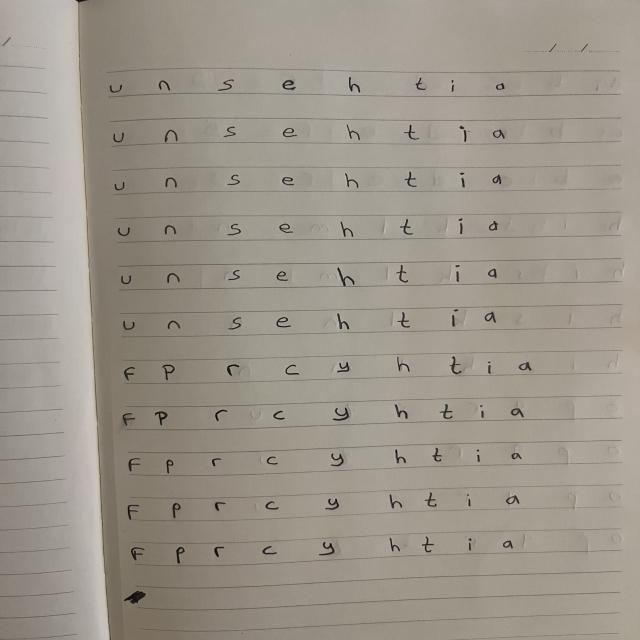 u n s e h t i a
u n s e h t i a
u n s e h t i a
u n s e h t i a
u n s e h t i a
u n s e h t i a
F P r c y h t i a
F P r c y h t i a
F p r c y h t i a
F p r c y h t i a
F p r c y h t i a